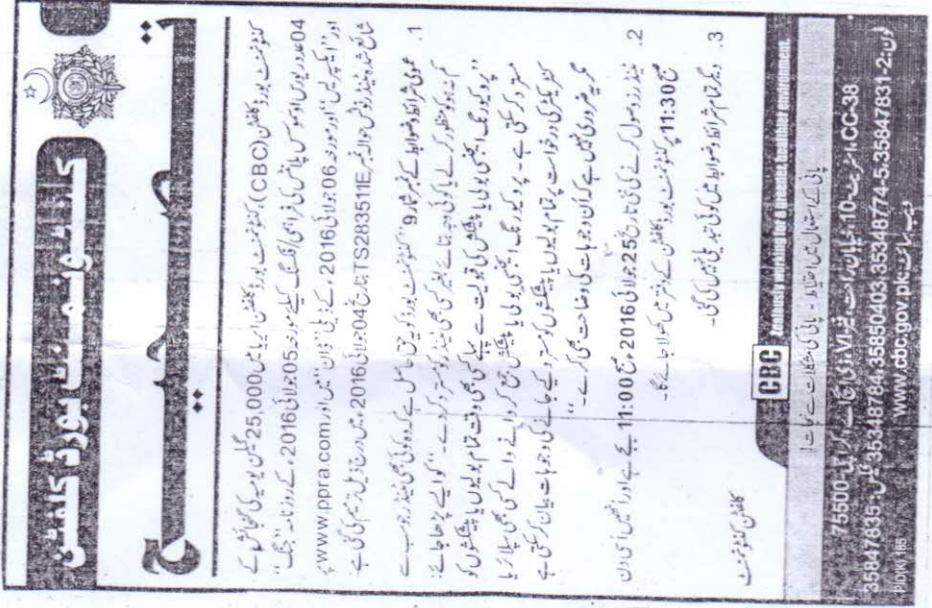 کنٹونمنٹ بورڈ کلفٹن
تصحیح
کنٹونمنٹ بورڈ کلفٹن (CBC) کنٹونمنٹ بورڈ کلفٹن ایریا میں 25,000 گیلن یومیہ کی گنجائش کے
04 عدد ریورس اوسموس پلانٹس کی فراہمی/فکسنگ کیلئے مورخہ 05 جولائی 2016ء کے روزنامہ "جنگ"
اور "ایکسپریس" اور مورخہ 06 جولائی 2016ء کے ڈیلی "ڈان" میں اور www.ppra.com پر
شائع شدہ ٹینڈر نوٹس حوالہ نمبر TS283511E تاریخ 04 جولائی 2016ء میں درج ذیل ترمیم کی گئی ہے:
1. عمومی شرائط و ضوابط کے نمبر شمار 9 "کنٹونمنٹ بورڈ کو یہ حق حاصل ہے کہ وہ کوئی بھی ٹینڈر جو سب سے
کم ہو کو منظور کرلے یا کوئی وجہ بتائے بغیر کسی بھی ٹینڈر کو مسترد کردے۔" کو ایسے پڑھا جائے:
"پروکیورنگ ایجنسی بولی یا پیشکش کی قبولیت سے پہلے کسی بھی وقت تمام بولیوں یا پیشکشوں کو
مسترد کرسکتی ہے۔ پروکیورنگ ایجنسی بولی یا پیشکش جمع کروانے والے کسی بھی سپلائر یا
کنٹریکٹر کی درخواست پر تمام بولیوں یا پیشکشوں کو مسترد کیے جانے کی وجوہات بیان کرسکتی ہے
مگر یہ ضروری نہیں ہے کہ ان وجوہات کی وضاحت بھی کرے۔"
2. ٹینڈرز وصول کرنے کی تاریخ 25 جولائی 2016ء صبح 11:00 بجے ہے اور انہیں اسی دن
صبح 11:30 پر کنٹونمنٹ بورڈ کلفٹن کے دفتر میں کھولا جائے گا۔
3. دیگر تمام شرائط و ضوابط میں کوئی تبدیلی نہیں کی گئی۔
کلفٹن کنٹونمنٹ
CBC
پانی کے استعمال میں احتیاط - پانی کی مشکلات سے نجات!
CC-38، اسٹریٹ-10، خیابان راحت، فیز-VI، ڈی ایچ اے، کراچی-75500
فون: 2-35847831-5، 35348774، 35850403، 35348784 فیکس: 35847835
ویب سائٹ: www.cbc.gov.pk
PID(K) 186